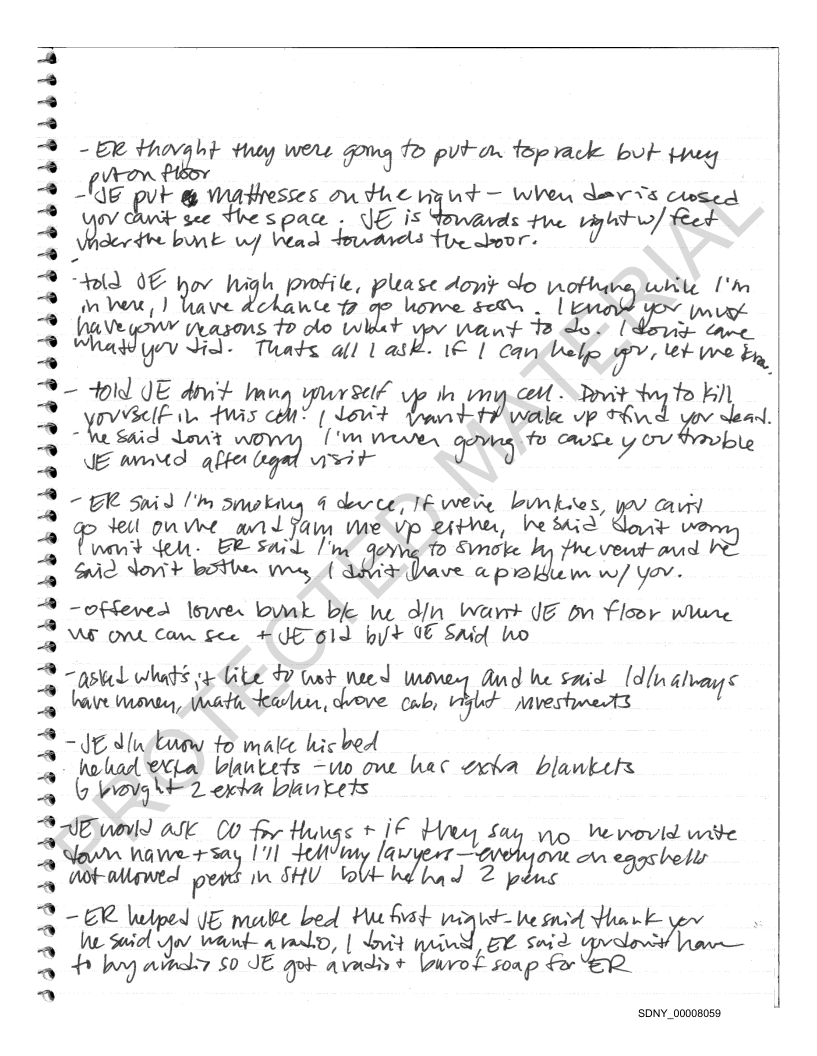 - ER thought they were going to put on top rack but they
put on floor
- JE put mattresses on the right - when door is closed
you can't see the space. JE is towards the right w/ feet
under the bunk w/ head towards the door.
-
- told JE your high profile, please don't do nothing while I'm
in here, I have a chance to go home soon. I know you must
have your reasons to do what you want to do. I don't care
what you did. Thats all I ask. If I can help you, let me know.
- told JE don't hang yourself up in my cell. Don't try to kill
yourself in this cell. I don't want to wake up + find you dead.
- he said don't worry I'm never going to cause you trouble
JE arrived after legal visit
- ER said I'm smoking a deuce, if we're bunkies, you can't
go tell on me and jam me up either, he said don't worry
I won't tell. ER said I'm going to smoke by the vent and he
said don't bother me, I don't have a problem w/ you.
- offered lower bunk b/c he d/n want JE on floor where
no one can see + JE old but JE said no
- asked what's it like to not need money and he said I d/n always
have money, math teacher, drove cab, right investments
- JE d/n know to make his bed
he had extra blankets - no one has extra blankets
G brought 2 extra blankets
- JE would ask CO for things + if they say no he would write
down name + say I'll tell my lawyers - everyone on eggshells
not allowed pens in SHU but he had 2 pens
- ER helped JE make bed the first night - he said thank you
he said you want a radio, I don't mind, ER said you don't have
to buy a radio so JE got a radio + bar of soap for ER
PROTECTED MATERIAL
SDNY_00008059